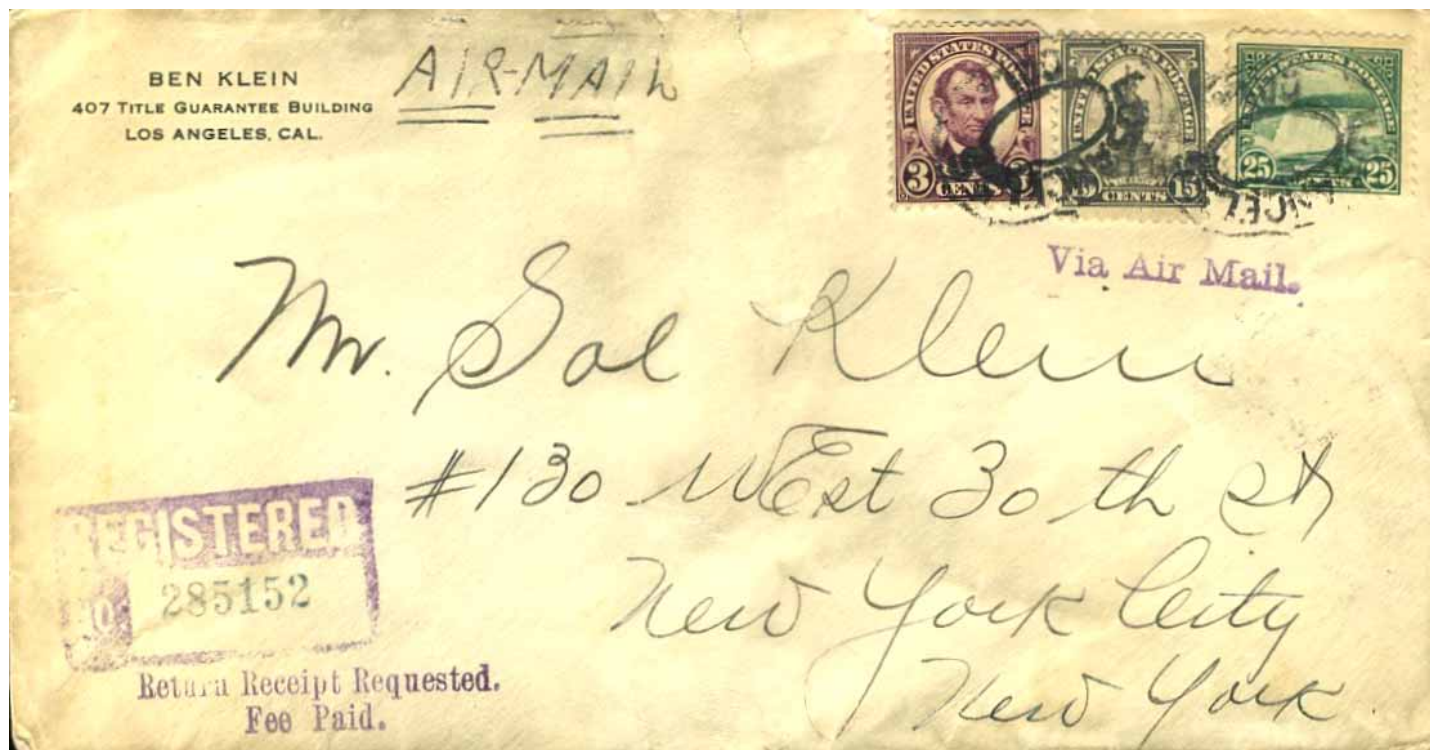 BEN KLEIN
407 TITLE GUARANTEE BUILDING
LOS ANGELES, CAL.
AIR-MAIL
UNITED STATES POSTAGE
3 CENTS 3
UNITED STATES POSTAGE
CENTS 15
UNITED STATES POSTAGE
25 25
Via Air Mail.
Mr. Sol Klein
#130 WEst 30th St
New York City
New York.
REGISTERED
NO. 285152
Return Receipt Requested.
Fee Paid.